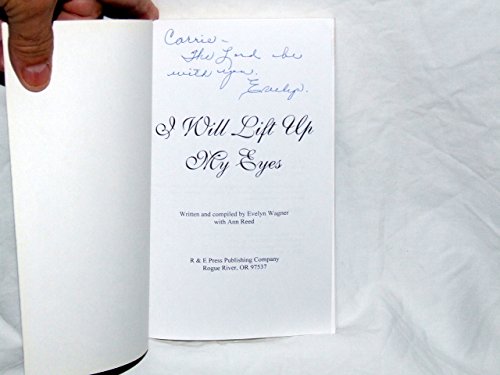 Carrie –
The Lord be
with you.
Evelyn.
I Will Lift Up
My Eyes
Written and compiled by Evelyn Wagner
with Ann Reed
R & E Press Publishing Company
Rogue River, OR 97537